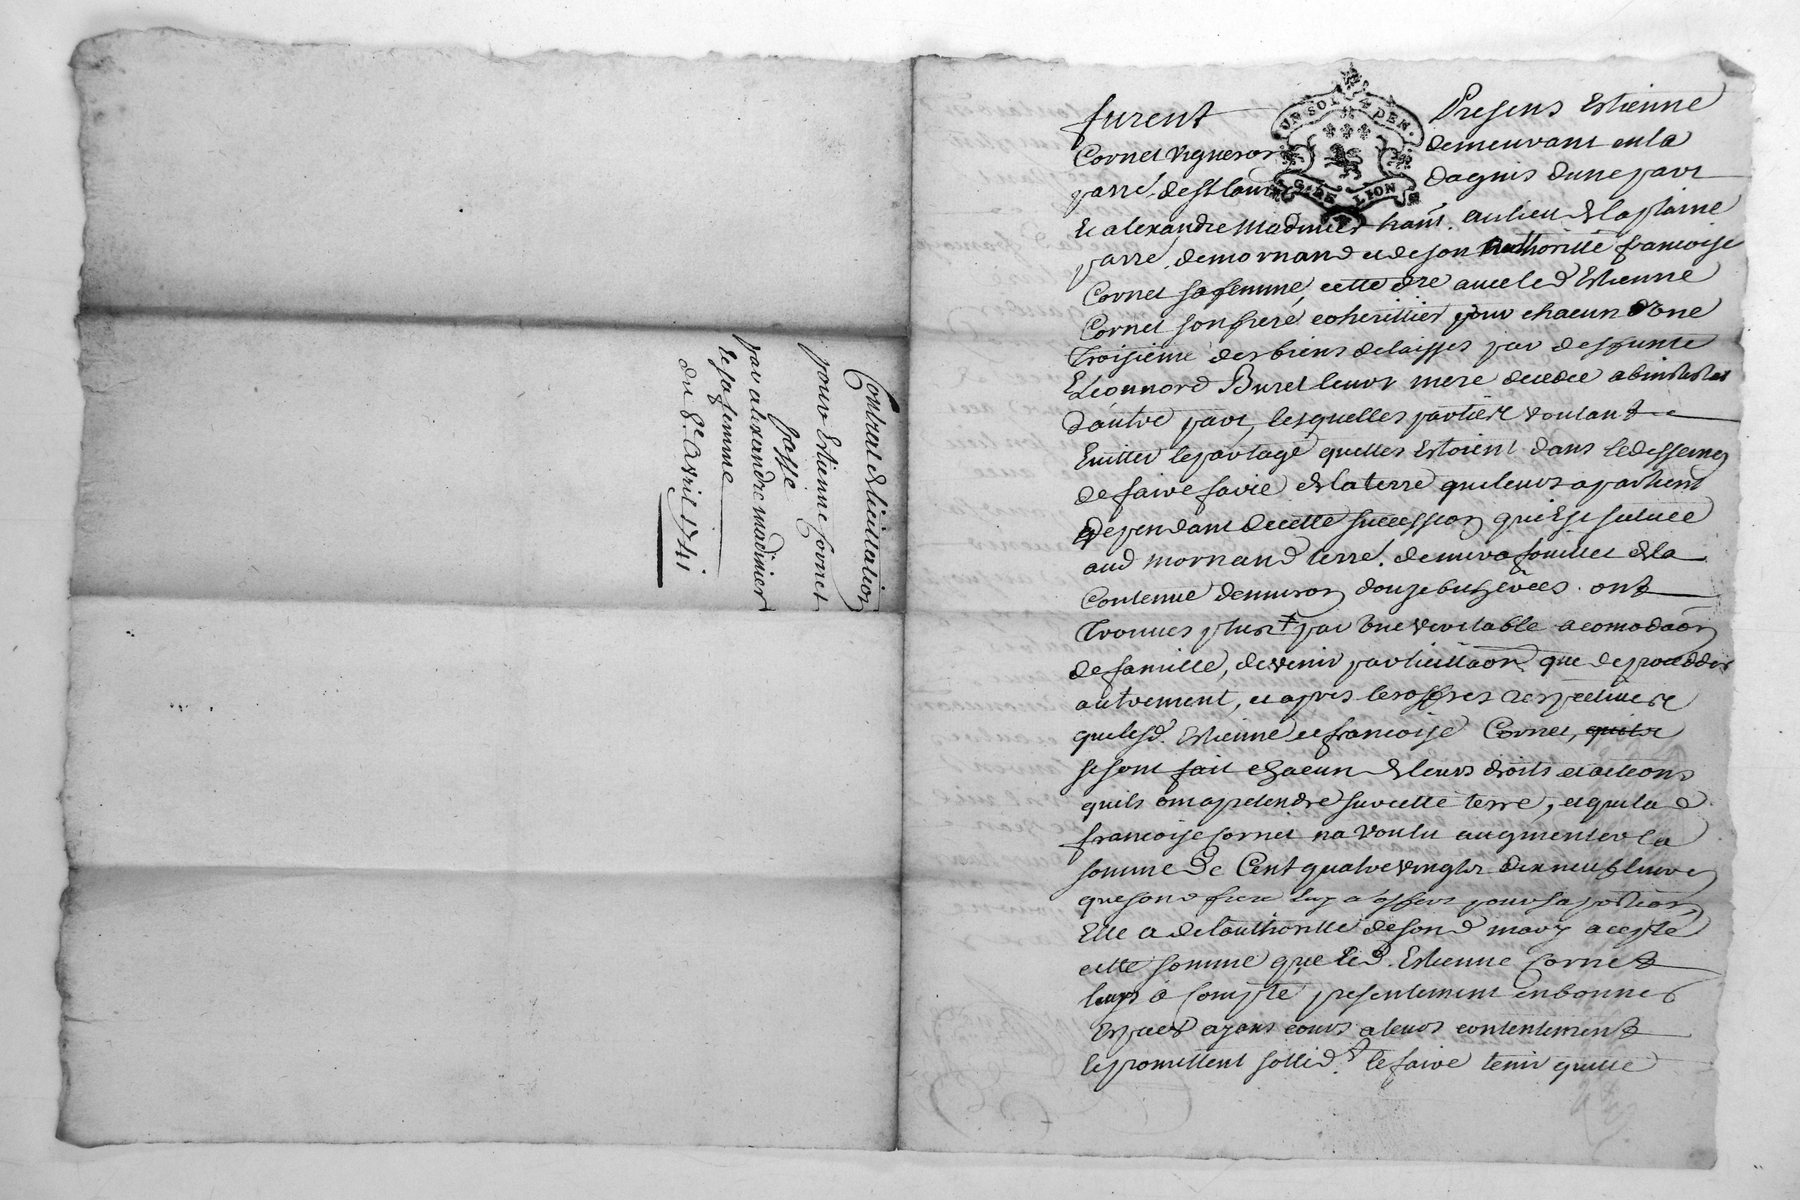 Contrat de licittation
pour Estienne Cornet
passé
par alexandre madinier
et sa femme
du 8e. Avril 1741
UN SOL 4 DEN.
G. DE LION
furent Presens Estienne
Cornet vigneron demeurant en la
parr.e de St Laurent dagnis dune part
Et alexandre Madinier habit. au lieu de la plaine
parre. de mornand et de son authoritté francoise
Cornet sa femme, cette dre avec led Estienne
Cornet son frere coherittier pour chacun d'une
Troisieme des biens delaisses par deffunte
Eleonnord Buret leurs mere decedée abintestat
d'autre part, lesquelles parties voulant
Evitter le partage quelles Estoient dans le dessein
de faire faire de la terre qui leurs apartient
dependant de cette succession qui Est scituée
aud mornand terre. de de la
Contenue denviron douze bicherées. ont
Trouvés plus + par une veritable acomodaon
de famille, de venir par licittaon que de proceder
autrement, et apres les offres respectives
que lesd. Estienne et francoise Cornet,
se sont fait chacun de leurs droits et actions
quils ont a pretendre sur cette terre, et que lad.
francoise Cornet na voulu augmenter la
somme De Cent quatre vingts dix neuf livres
que sond frere luy a offert pour sa portion,
Elle a de lauthoritté de sond mary acepté
cette somme que led. Estienne Cornet
leurs a Compté presentement en bonnes
Especes ayans cours a leurs contentement
et promettent sollid.t le faire tenir quitte